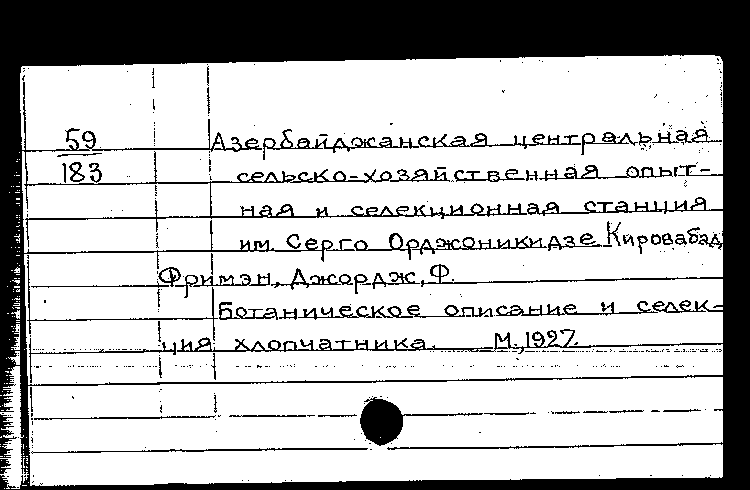 59
183
Азербайджанская центральная
сельско-хозяйственная опыт-
ная и селекционная станция
им. Серго Орджоникидзе Кировабад,
Фримэн, Джордж, Ф.
Ботаническое описание и селек-
ция хлопчатника. М., 1927.